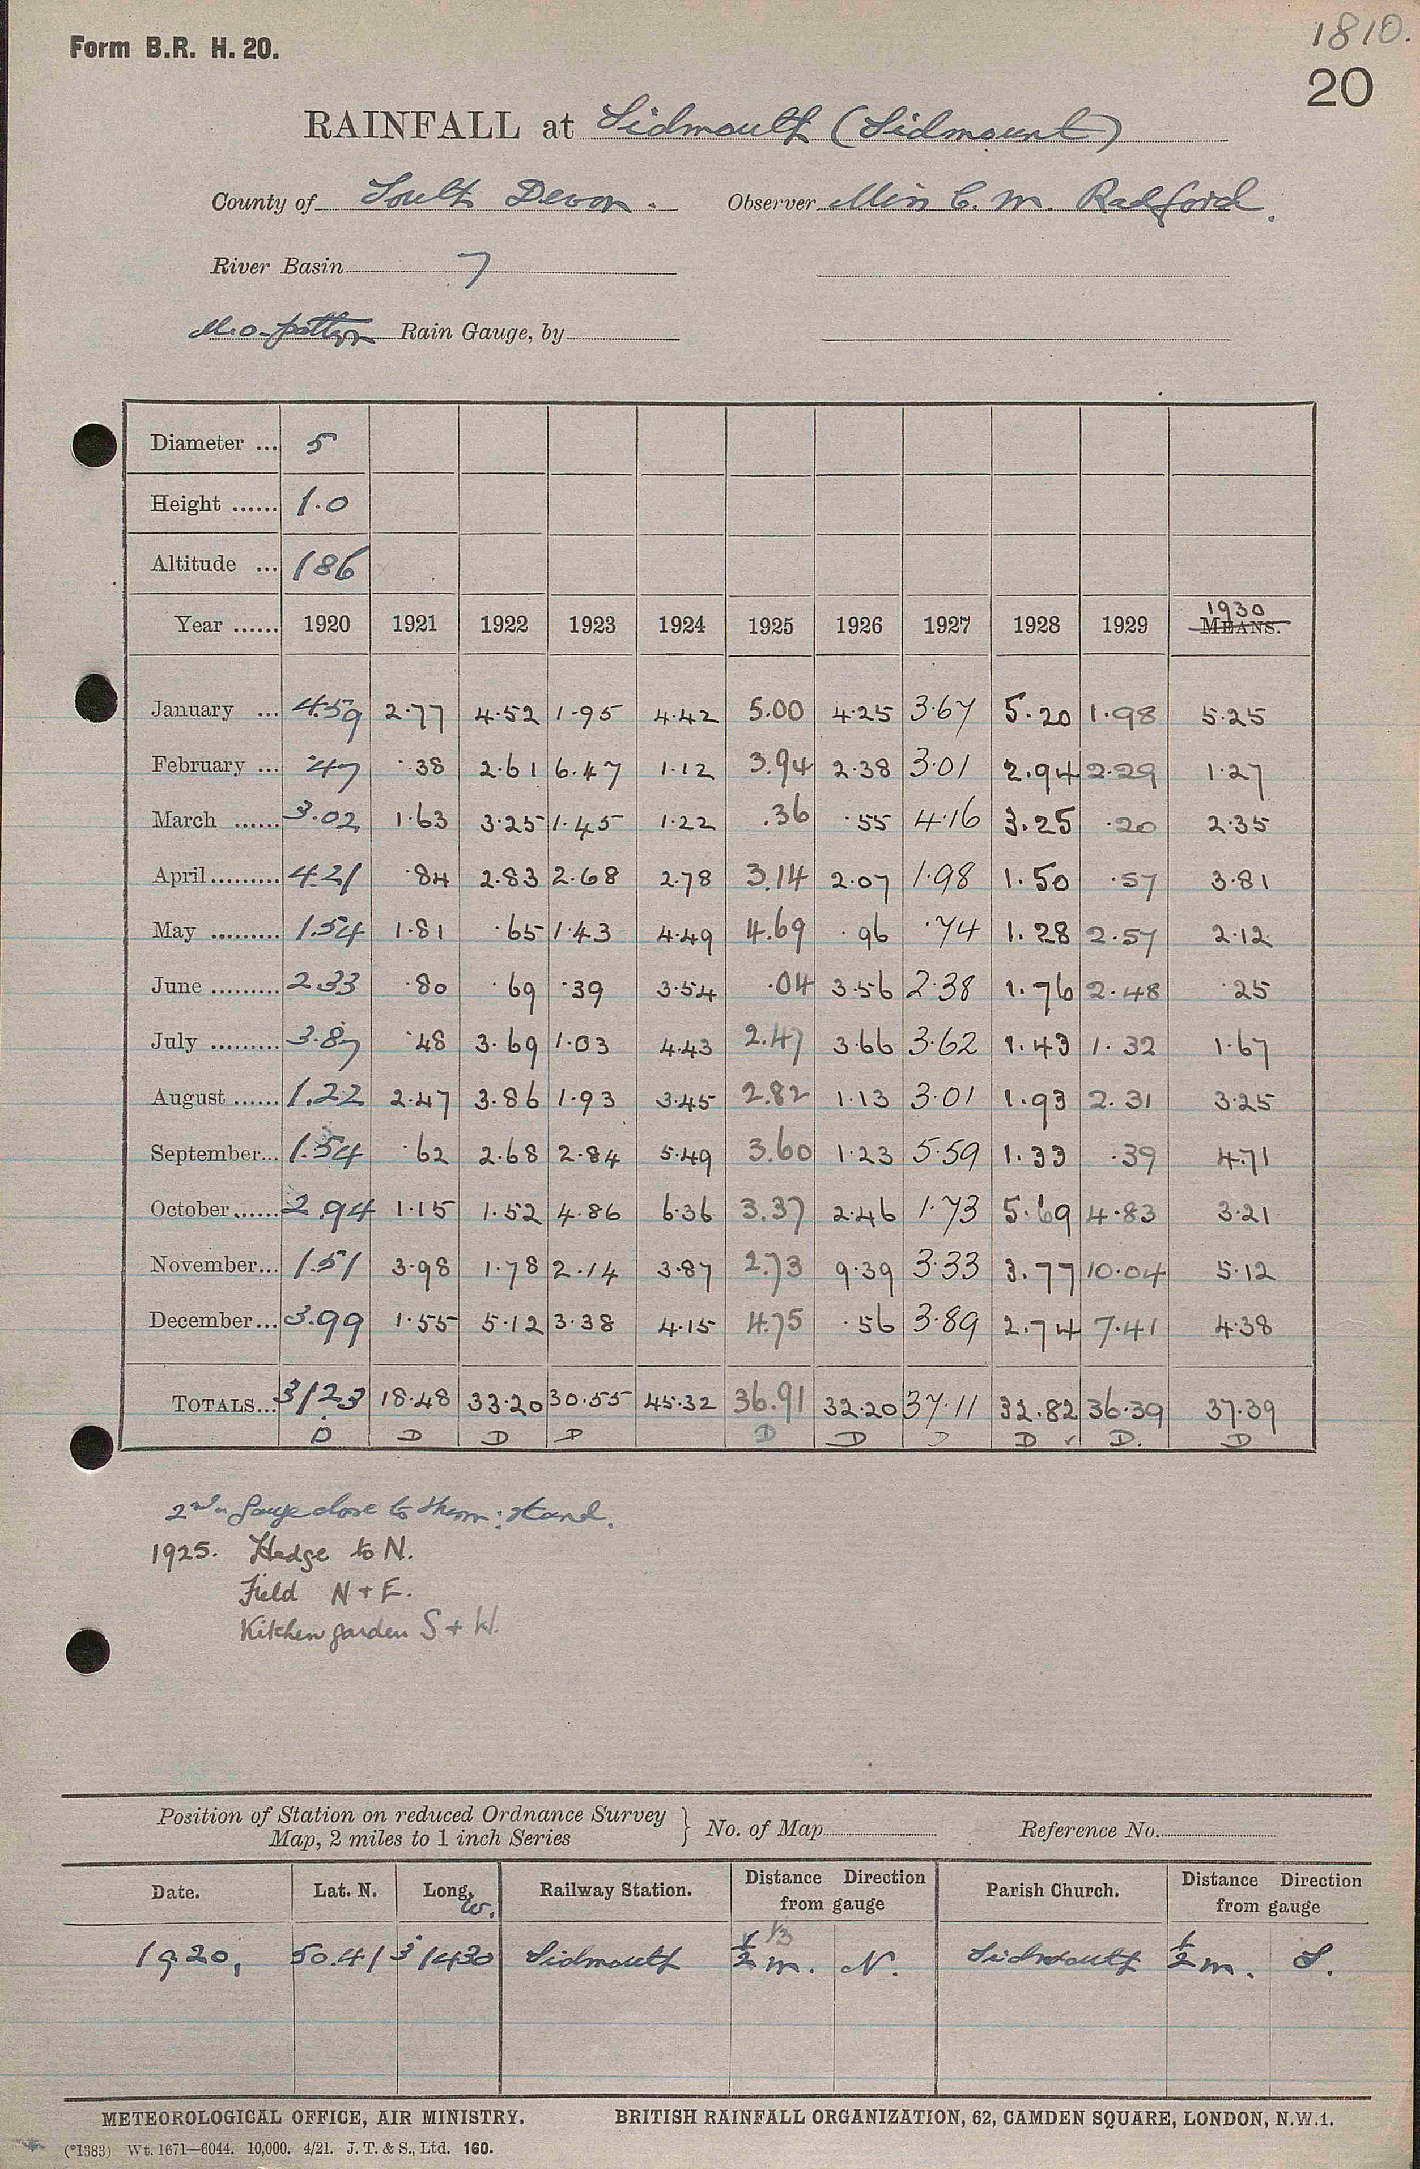 1810.
Form B.R. H. 20.
20
RAINFALL at Sidmouth (Sidmount)
County of South Devon. Observer Miss C. M. Radford.
River Basin 7
M.O. pattern Rain Gauge, by
Diameter ... 5
Height ...... 1.0
Altitude ... 186
Year ...... 1920 1921 1922 1923 1924 1925 1926 1927 1928 1929 1930 MEANS.
January ... 4.59 2.77 4.52 1.95 4.42 5.00 4.25 3.67 5.20 1.98 5.25
February ... .47 .38 2.61 6.47 1.12 3.94 2.38 3.01 2.94 2.29 1.27
March ...... 3.02 1.63 3.25 1.45 1.22 .36 .55 4.16 3.25 .20 2.35
April ......... 4.21 .84 2.83 2.68 2.78 3.14 2.07 1.98 1.50 .57 3.81
May ......... 1.54 1.81 .65 1.43 4.49 4.69 .96 .74 1.28 2.57 2.12
June ......... 2.33 .80 .69 .39 3.54 .04 3.56 2.38 1.76 2.48 .25
July ......... 3.87 .48 3.69 1.03 4.43 2.47 3.66 3.62 1.43 1.32 1.67
August ...... 1.22 2.47 3.86 1.93 3.45 2.82 1.13 3.01 1.93 2.31 3.25
September ... 1.54 .62 2.68 2.84 5.49 3.60 1.23 5.59 1.33 .39 4.71
October ...... 2.94 1.15 1.52 4.86 6.36 3.37 2.46 1.73 5.69 4.83 3.21
November ... 1.51 3.98 1.78 2.14 3.87 2.73 9.39 3.33 3.77 10.04 5.12
December ... 3.99 1.55 5.12 3.38 4.15 4.75 .56 3.89 2.74 7.41 4.38
TOTALS ... 31.23 18.48 33.20 30.55 45.32 36.91 32.20 37.11 32.82 36.39 37.39
D D D D D D D D ✓ D. D
2nd gauge close to therm: stand.
1925. Hedge to N.
Field N + E.
Kitchen garden S + W.
Position of Station on reduced Ordnance Survey
Map, 2 miles to 1 inch Series } No. of Map Reference No.
Date. Lat. N. Long. W. Railway Station. Distance Direction from gauge Parish Church. Distance Direction from gauge
1920, 50.41 3°1430 Sidmouth 1/2 1/3 m. N. Sidmouth 1/2 m. S.
METEOROLOGICAL OFFICE, AIR MINISTRY. BRITISH RAINFALL ORGANIZATION, 62, CAMDEN SQUARE, LONDON, N.W.1.
(*1383) Wt. 1671—6044. 10,000. 4/21. J. T. & S., Ltd. 160.